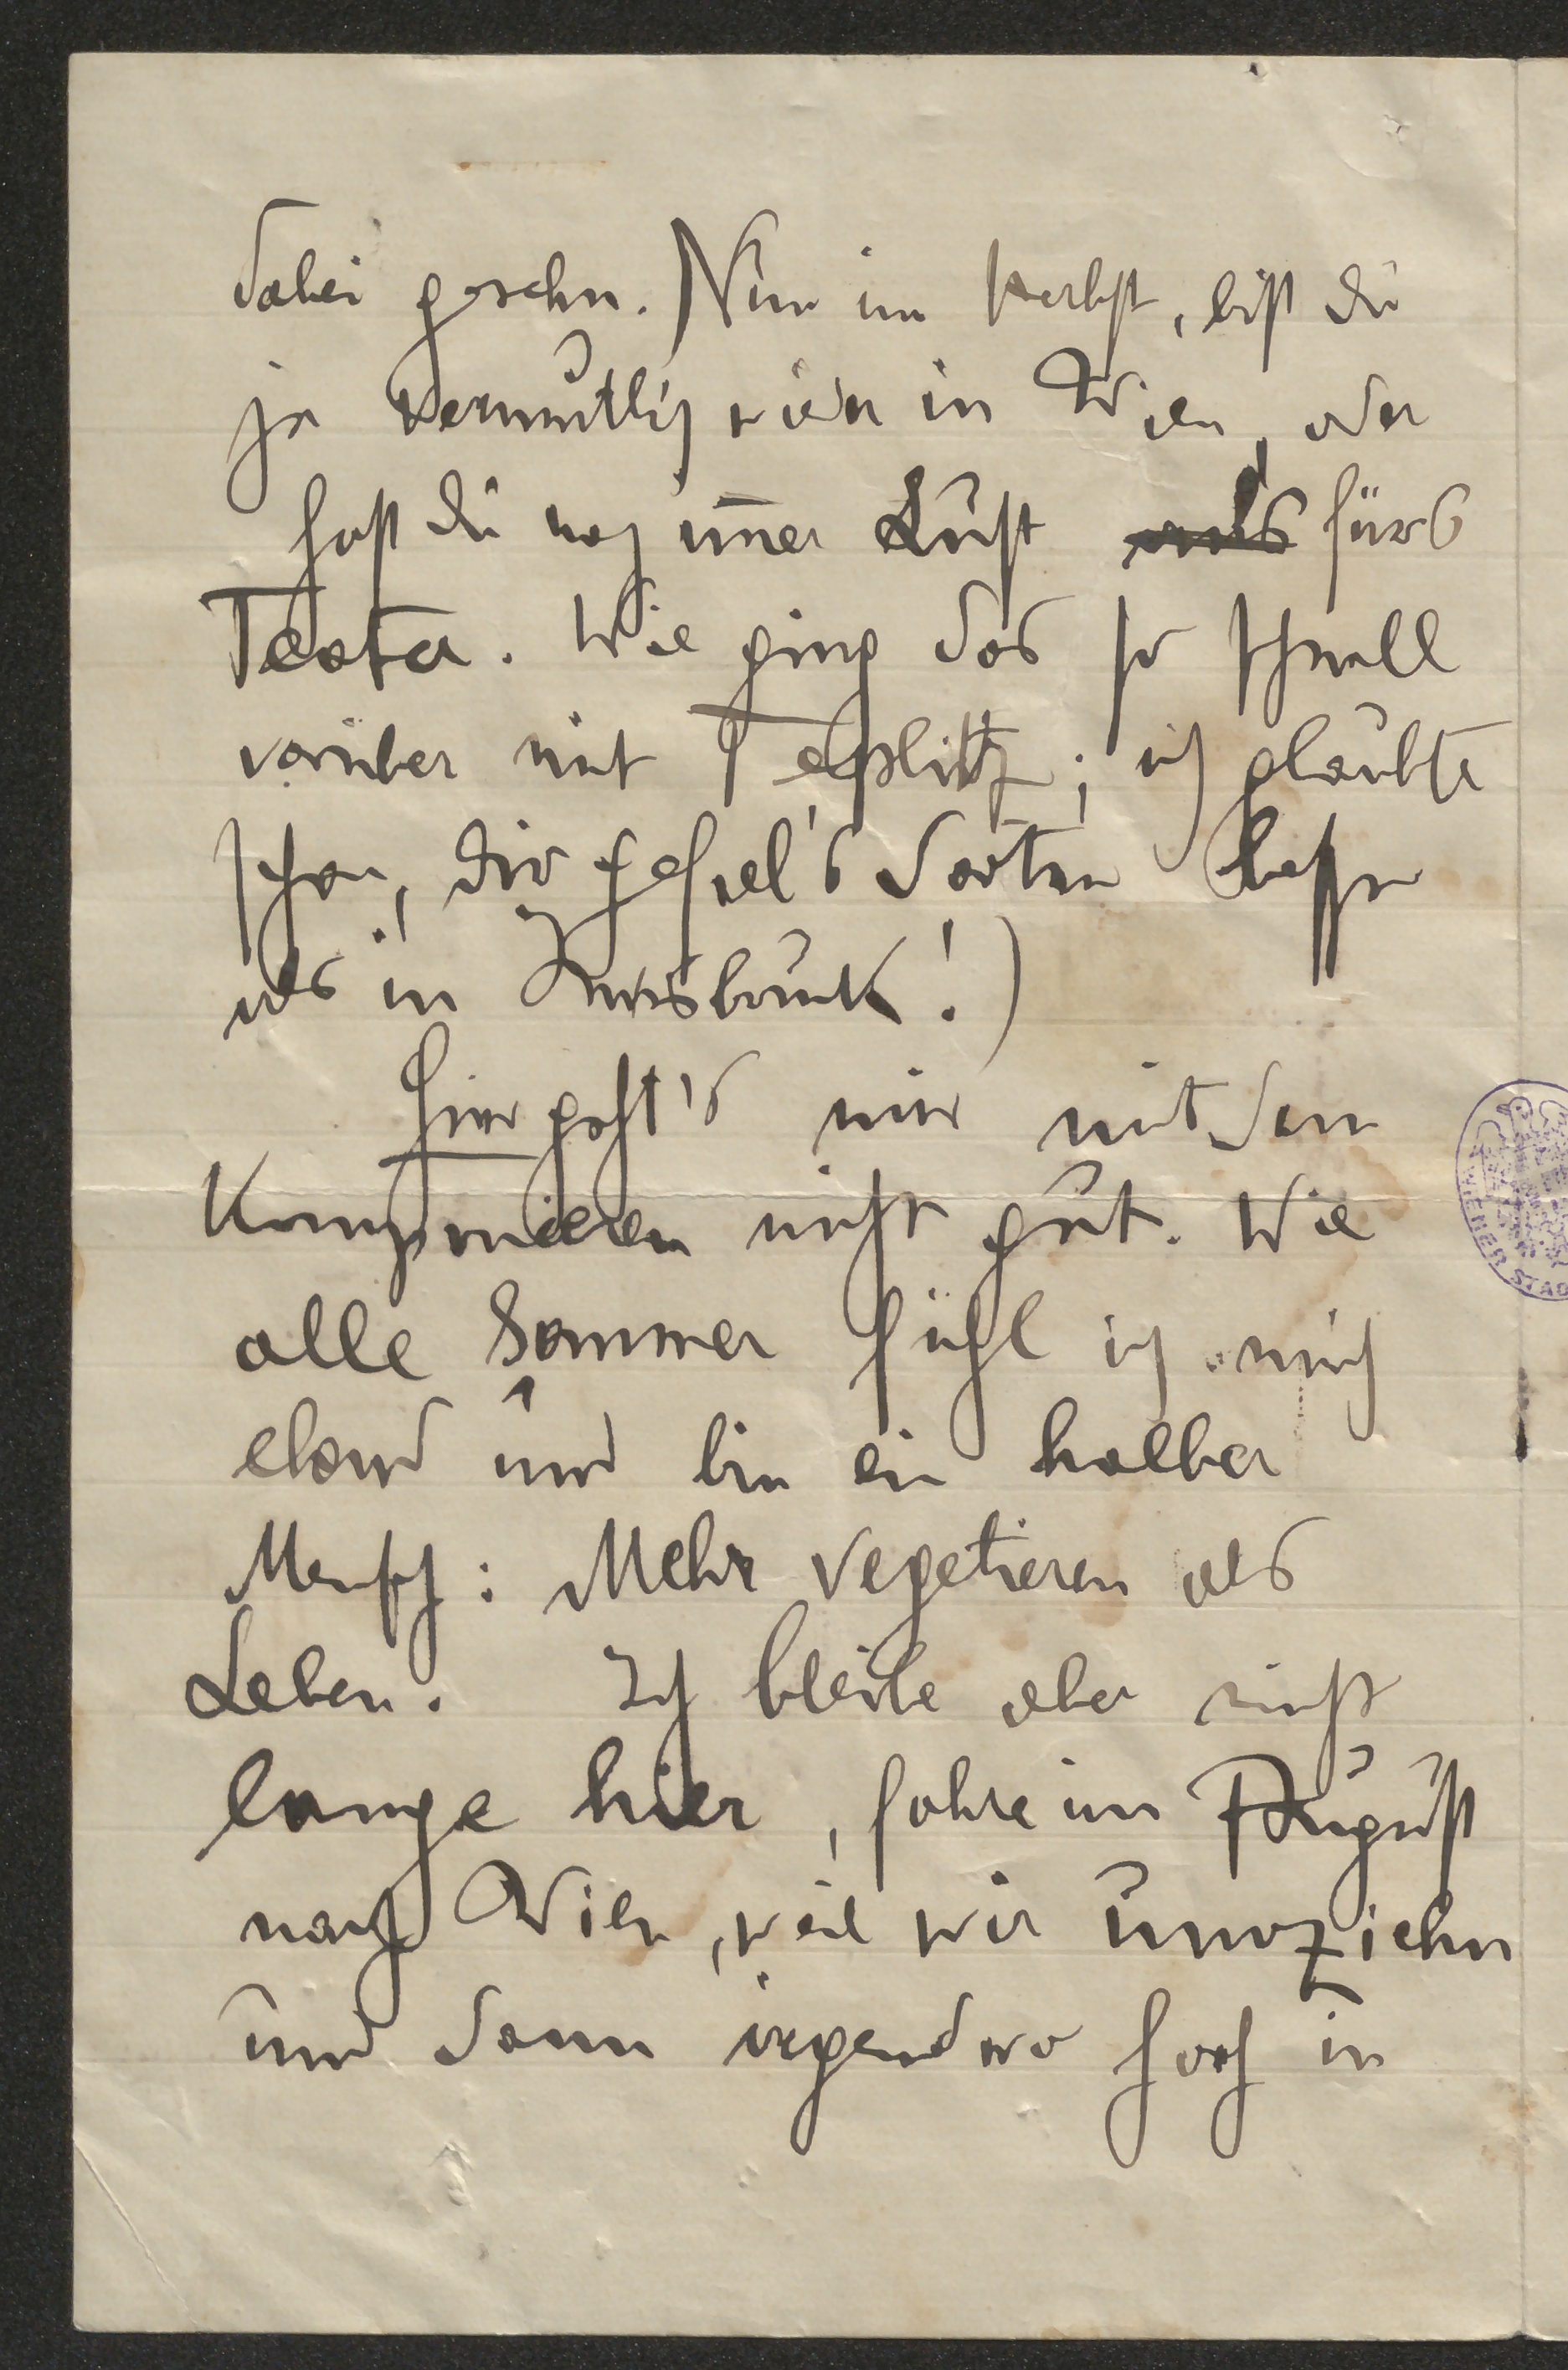 dabei gesehn. Nun im Herbst, bist du
ja vermutlich wieder in Wien, oder
hast du noch im̅er Lust fürs
Teater. Wie ging das so schnell
vorüber mit Teplitz; ich glaubte
schon, dir gefiel's dorten besser
als in Innsbruck!)
Hier geht's mir mit dem
Komponieren nicht gut. Wie
alle Sommer fühl ich mich
elend und bin ein halber
Mensch: Mehr vegetieren als
Leben. Ich bleibe aber nicht
lange hier, fahre im August
nach Wien, weil wir umziehn
und dann irgendwo hoch in
WIENER STAD